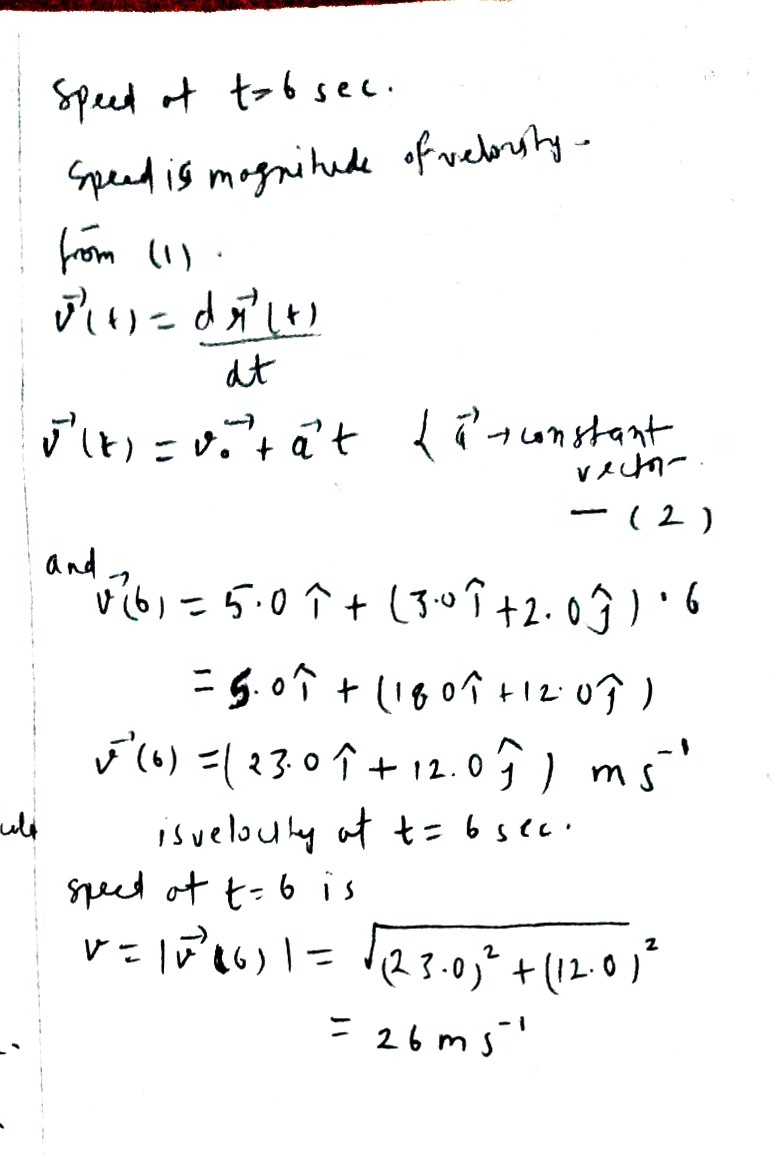 Speed at t=6 sec.
Speed is magnitude of velocity -
from (1).
v⃗(t) = dr⃗(t)
dt
v⃗(t) = v₀⃗ + a⃗t { a⃗ → constant
vector
— (2)
and
v⃗(6) = 5.0 î + (3.0î + 2.0ĵ) · 6
= 5.0î + (18.0î + 12.0ĵ)
v⃗(6) = (23.0 î + 12.0 ĵ) ms⁻¹
is velocity at t = 6 sec.
speed at t=6 is
v = |v⃗(6)| = √(23.0)² + (12.0)²
= 26 ms⁻¹